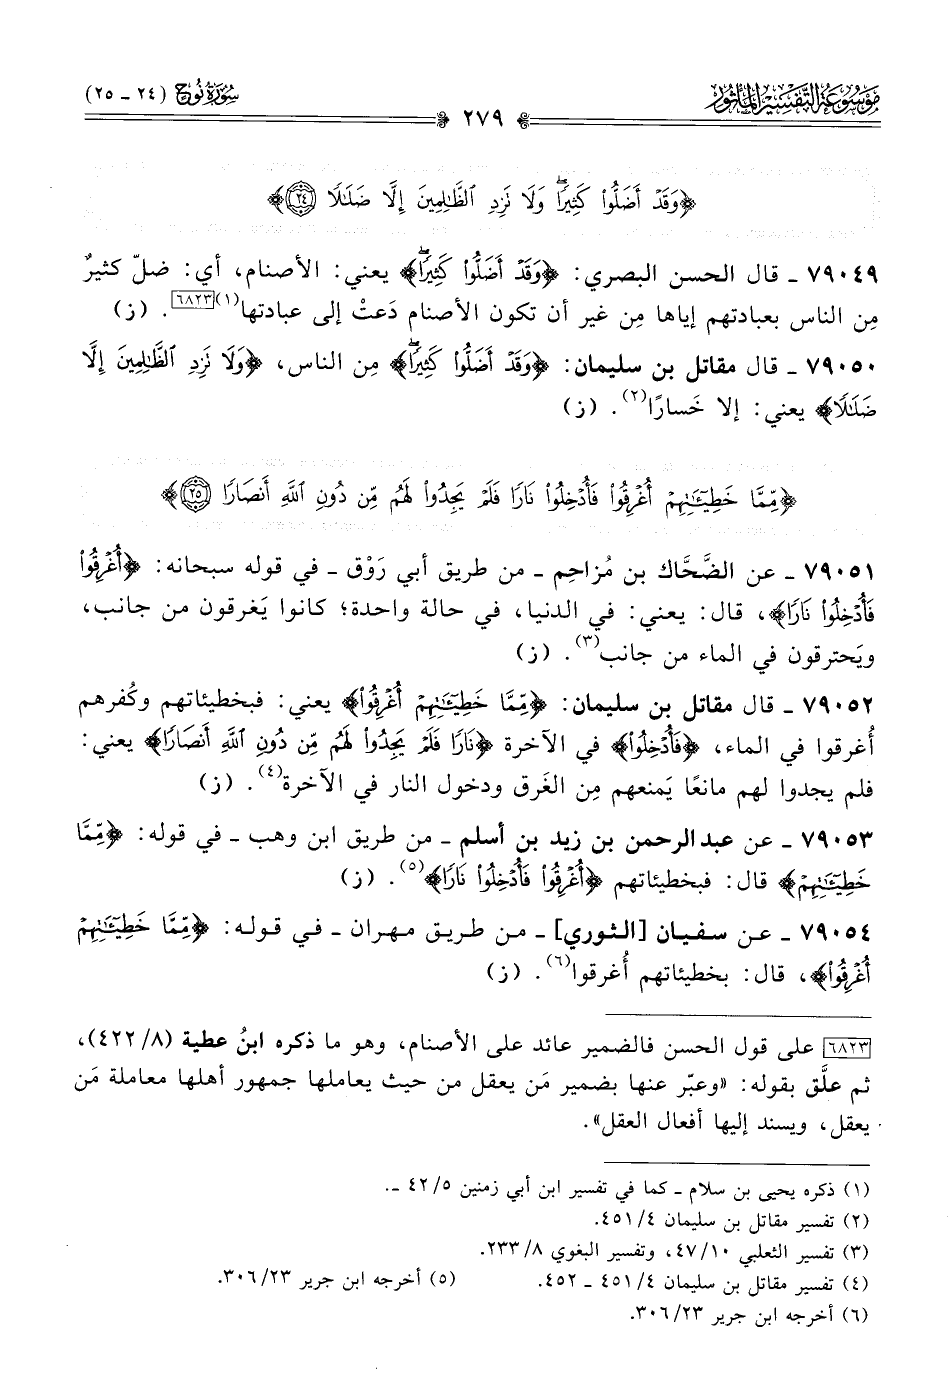 مَوْسُوعَة التَّفْسِيرُ المَأْثُور
سُورَةُ نُوح (٢٤ - ٢٥)
٢٧٩
﴿وَقَدْ أَضَلُّوا۟ كَثِيرًۖا وَلَا نَزِدِ ٱلظَّـٰلِمِينَ إِلَّا ضَلَـٰلًا ٢٤﴾
٧٩٠٤٩ - قال الحسن البصري: ﴿وَقَدْ أَضَلُّوا۟ كَثِيرًۖا﴾ يعني: الأصنام، أي: ضلّ كثيرٌ
مِن الناس بعبادتهم إياها مِن غير أن تكون الأصنام دَعتْ إلى عبادتها(١)[٦٨٢٣]. (ز)
٧٩٠٥٠ - قال مقاتل بن سليمان: ﴿وَقَدْ أَضَلُّوا۟ كَثِيرًۖا﴾ مِن الناس، ﴿وَلَا نَزِدِ ٱلظَّـٰلِمِينَ إِلَّا
ضَلَـٰلًا﴾ يعني: إلا خَسارًا(٢). (ز)
﴿مِّمَّا خَطِيٓـَٔـٰتِهِمْ أُغْرِقُوا۟ فَأُدْخِلُوا۟ نَارًا فَلَمْ يَجِدُوا۟ لَهُم مِّن دُونِ ٱللَّهِ أَنصَارًا ٢٥﴾
٧٩٠٥١ - عن الضَّحَّاك بن مُزاحِم - من طريق أبي رَوْق - في قوله سبحانه: ﴿أُغْرِقُوا۟
فَأُدْخِلُوا۟ نَارًا﴾، قال: يعني: في الدنيا، في حالة واحدة؛ كانوا يَغرقون من جانب،
ويَحترقون في الماء من جانب(٣). (ز)
٧٩٠٥٢ - قال مقاتل بن سليمان: ﴿مِّمَّا خَطِيٓـَٔـٰتِهِمْ أُغْرِقُوا۟﴾ يعني: فبخطيئاتهم وكُفرهم
أُغرقوا في الماء، ﴿فَأُدْخِلُوا۟﴾ في الآخرة ﴿نَارًا فَلَمْ يَجِدُوا۟ لَهُم مِّن دُونِ ٱللَّهِ أَنصَارًا﴾ يعني:
فلم يجدوا لهم مانعًا يَمنعهم مِن الغَرق ودخول النار في الآخرة(٤). (ز)
٧٩٠٥٣ - عن عبدالرحمن بن زيد بن أسلم - من طريق ابن وهب - في قوله: ﴿مِّمَّا
خَطِيٓـَٔـٰتِهِمْ﴾ قال: فبخطيئاتهم ﴿أُغْرِقُوا۟ فَأُدْخِلُوا۟ نَارًا﴾(٥). (ز)
٧٩٠٥٤ - عن سفيان [الثوري] - من طريق مهران - في قوله: ﴿مِّمَّا خَطِيٓـَٔـٰتِهِمْ
أُغْرِقُوا۟﴾، قال: بخطيئاتهم أُغرقوا(٦). (ز)
[٦٨٢٣] على قول الحسن فالضمير عائد على الأصنام، وهو ما ذكره ابنُ عطية (٤٢٢/٨)،
ثم علَّق بقوله: «وعبّر عنها بضمير مَن يعقل من حيث يعاملها جمهور أهلها معاملة مَن
يعقل، ويسند إليها أفعال العقل».
(١) ذكره يحيى بن سلام - كما في تفسير ابن أبي زمنين ٤٢/٥ -.
(٢) تفسير مقاتل بن سليمان ٤٥١/٤.
(٣) تفسير الثعلبي ٤٧/١٠، وتفسير البغوي ٢٣٣/٨.
(٤) تفسير مقاتل بن سليمان ٤٥١/٤ - ٤٥٢. (٥) أخرجه ابن جرير ٣٠٦/٢٣.
(٦) أخرجه ابن جرير ٣٠٦/٢٣.